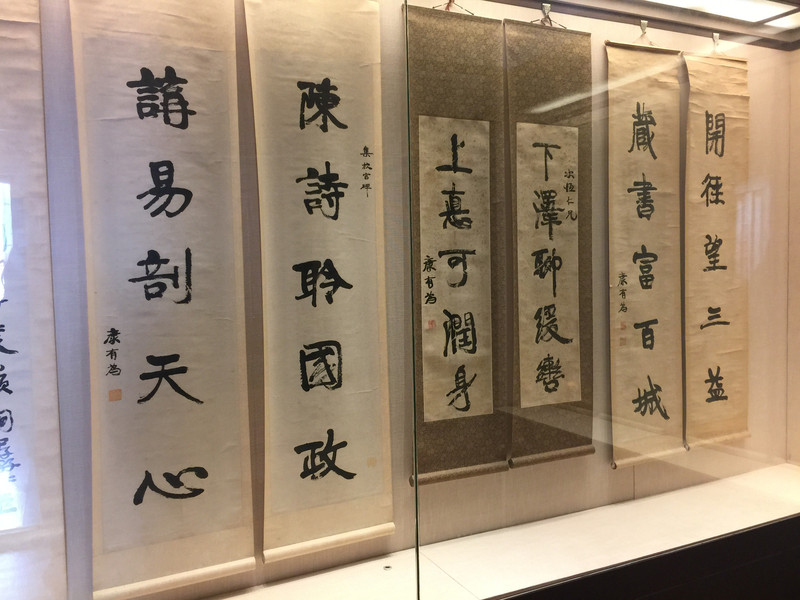 開徑望三益
藏書富百城
康有為
下澤聊緩轡
仁兄
上惪可潤身
康有為
陳詩聆國政
集校官碑
講易剖天心
康有為